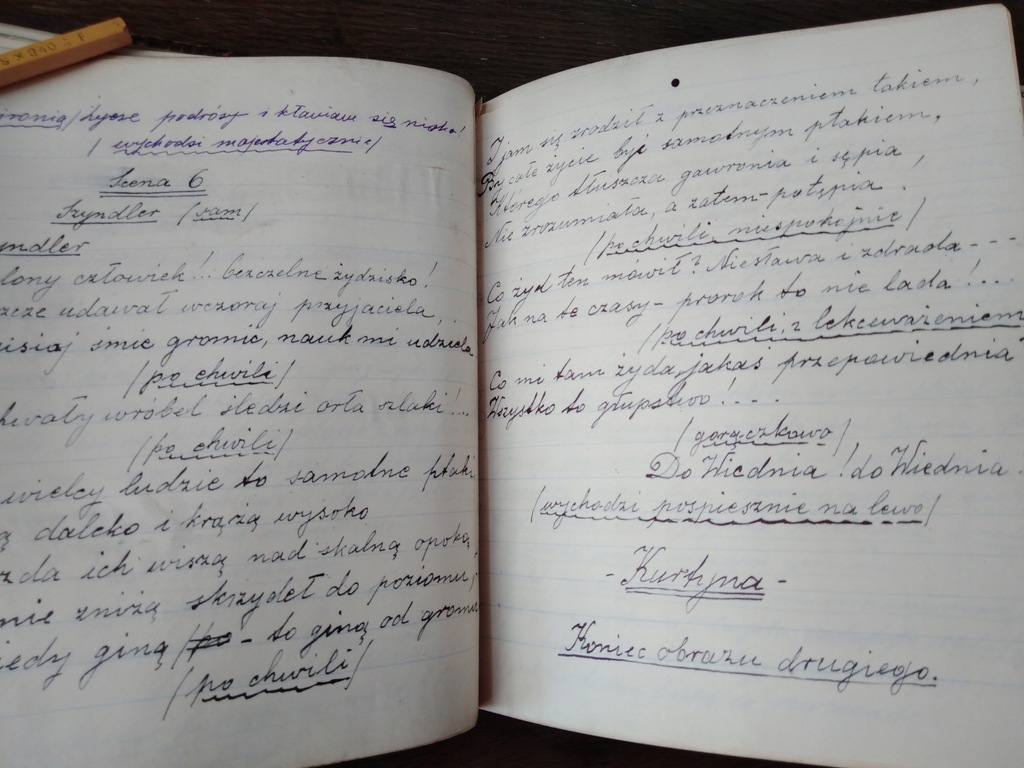 ironią/ Życzę podróży i kłaniam się nisko!
/ wychodzi majestatycznie/
Scena 6
Szyndler /sam/
yndler
lony człowiek!.. bezczelne żydzisko!
szcze udawał wczoraj przyjaciela...
isiaj śmie gromić, nauk mi udziela
/po chwili/
hwały wróbel śledzi orła szlaki!...
/po chwili/
wielcy ludzie to samotne ptaki
ą daleko i krążą wysoko
zda ich wiszą nad skalną opoką
nie zniżą skrzydeł do poziomu;
iedy giną /po - to giną od gromu
/po chwili/
I jam się zrodził z przeznaczeniem takiem,
By całe życie być samotnym ptakiem,
Którego tłuszcza gawronia i sępia,
Nie zrozumiała, a zatem - potępia.
/po chwili, niespokojnie/
Co żyd ten mówił? Niesława i zdrada - - -
Jak na te czasy - prorok to nie lada!...
/po chwili, z lekceważeniem
Co mi tam żyda jakaś przepowiednia
Wszystko to głupstwo!....
/gorączkowo/
Do Wiednia! do Wiednia.
/wychodzi pospiesznie na lewo/
- Kurtyna -
Koniec obrazu drugiego.